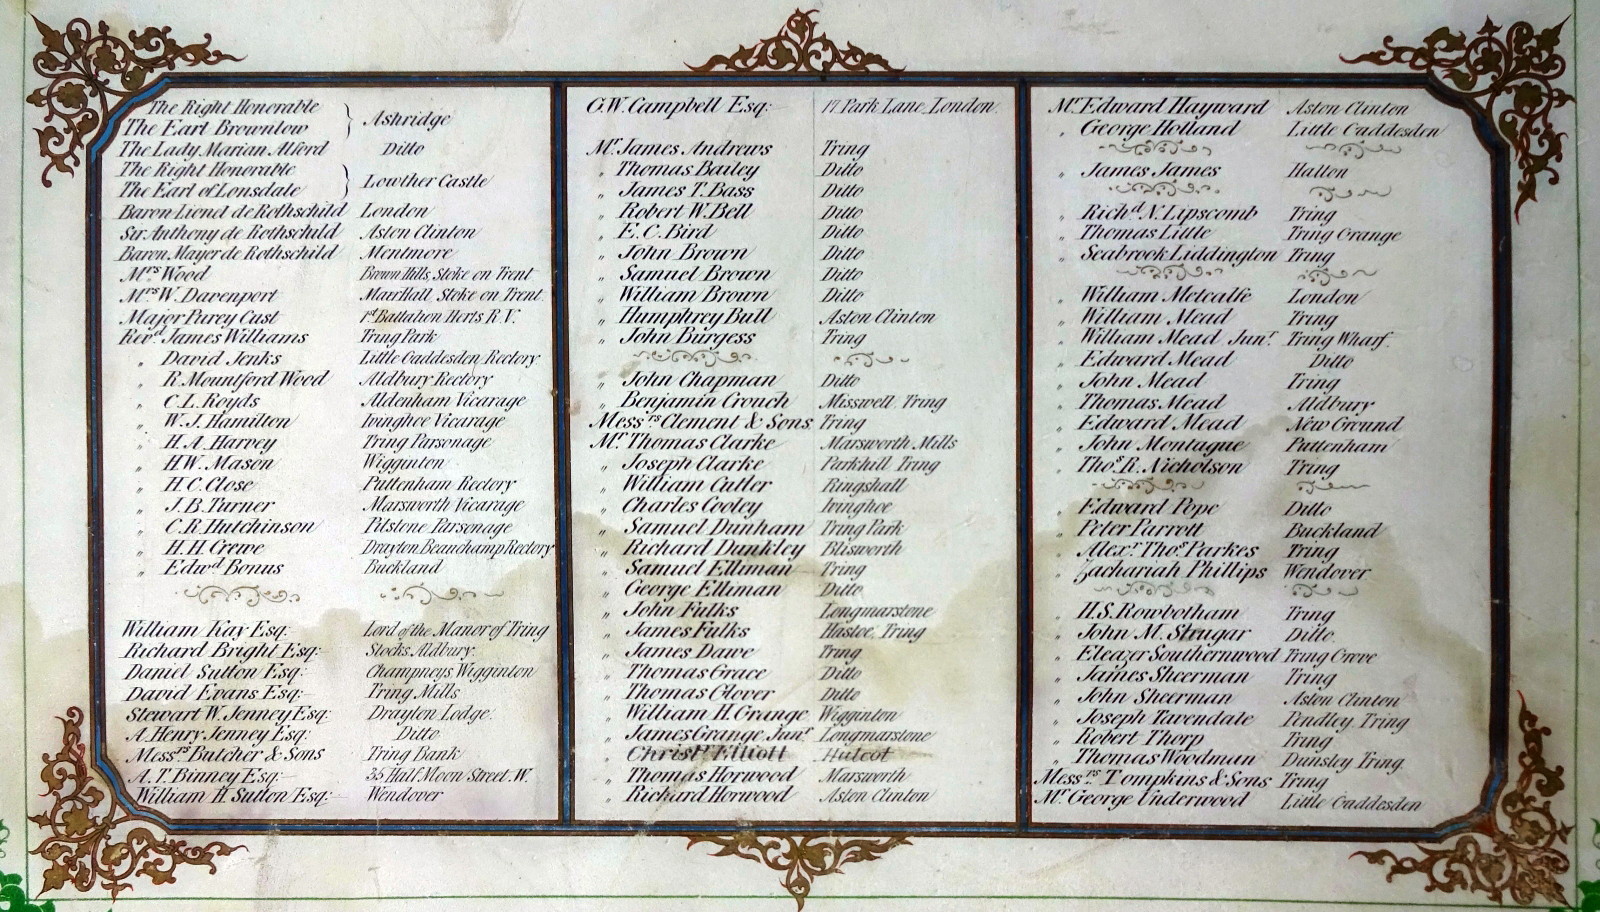 The Right Honorable
The Earl Brownlow } Ashridge
The Lady Marian Alford Ditto
The Right Honorable
The Earl of Lonsdale } Lowther Castle
Baron Lionel de Rothschild London
Sir Anthony de Rothschild Aston Clinton
Baron Mayer de Rothschild Mentmore
Mrs Wood Brown Hills, Stoke on Trent
Mrs W. Davenport Maer Hall, Stoke on Trent
Major Purey Cust 1st Battalion Herts R.V.
Revd James Williams Tring Park
„ David Jenks Little Gaddesden Rectory
„ R. Mountford Wood Aldbury Rectory
„ C.L. Royds Aldenham Vicarage
„ W.J. Hamilton Ivinghoe Vicarage
„ H.A. Harvey Tring Parsonage
„ H.W. Mason Wigginton
„ H.C. Close Puttenham Rectory
„ J.B. Turner Marsworth Vicarage
„ C.R. Hutchinson Pitstone Parsonage
„ H.H. Crewe Drayton Beauchamp Rectory
„ Edwd Bonus Buckland
William Kay Esq: Lord of the Manor of Tring
Richard Bright Esq: Stocks, Aldbury:
Daniel Sutton Esq: Champneys Wigginton
David Evans Esq: Tring Mills
Stewart W. Jenney Esq: Drayton Lodge.
A. Henry Jenney Esq: Ditto
Messrs Butcher & Sons Tring Bank
A.T. Binney Esq: 35 Half Moon Street. W.
William H. Sutton Esq: Wendover
G.W. Campbell Esq: 17 Park Lane, London.
Mr James Andrews Tring
„ Thomas Bailey Ditto
„ James T. Bass Ditto
„ Robert W. Bell Ditto
„ E.C. Bird Ditto
„ John Brown Ditto
„ Samuel Brown Ditto
„ William Brown Ditto
„ Humphrey Bull Aston Clinton
„ John Burgess Tring
„ John Chapman Ditto
„ Benjamin Crouch Misswell, Tring
Messrs Clement & Sons Tring
Mr Thomas Clarke Marsworth Mills
„ Joseph Clarke Parkhill Tring
„ William Cutler Ringshall
„ Charles Cooley Ivinghoe
„ Samuel Dunham Tring Park
„ Richard Dunkley Blisworth
„ Samuel Elliman Tring
„ George Elliman Ditto
„ John Fulks Longmarstone
„ James Fulks Hastoe, Tring
„ James Dawe Tring
„ Thomas Grace Ditto
„ Thomas Glover Ditto
„ William H. Grange Wigginton
„ James Grange, Junr Longmarstone
„ Christr Elliott Hulcot
„ Thomas Horwood Marsworth
„ Richard Horwood Aston Clinton
Mr Edward Hayward Aston Clinton
„ George Holland Little Gaddesden
„ James James Halton
„ Richd N. Lipscomb Tring
„ Thomas Little Tring Grange
„ Seabrook Liddington Tring
„ William Metcalfe London
„ William Mead Tring
„ William Mead Junr. Tring Wharf.
„ Edward Mead Ditto
„ John Mead Tring
„ Thomas Mead Aldbury
„ Edward Mead New Ground
„ John Montague Puttenham
„ Thos R. Nicholson Tring
„ Edward Pope Ditto
„ Peter Parrott Buckland
„ Alexr Thos Parkes Tring
„ Zachariah Phillips Wendover
„ H.S. Rowbotham Tring
„ John M. Strugar Ditto
„ Eleazer Southernwood Tring Grove
„ James Sheerman Tring
„ John Sheerman Aston Clinton
„ Joseph Tavendale Pendley, Tring
„ Robert Thorp Tring
„ Thomas Woodman Dunsley Tring
Messrs Tompkins & Sons Tring
Mr George Underwood Little Gaddesden